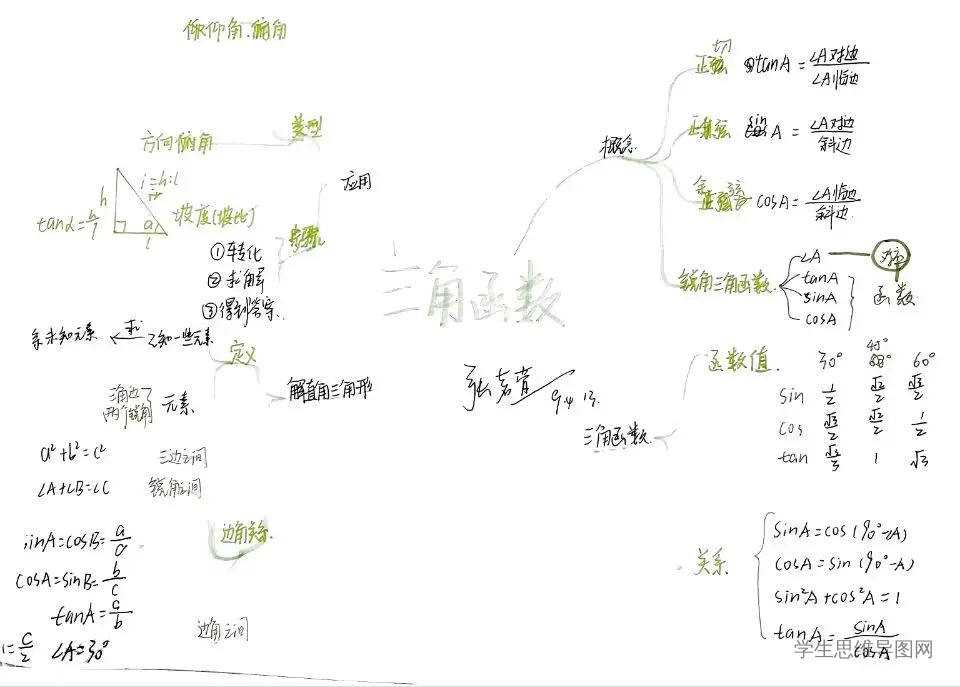 仰角.俯角
类型
方向俯角
i=h:l
h
tanα=h/l
α
l
坡度(坡比)
应用
步骤
①转化
②求解
③得到答案.
余未知元素 ← 求 已知一些元素
定义
三角边了
两个锐角
元素
解直角三角形
a²+b²=c²
三边之间
∠A+∠B=∠C
锐角之间
sinA=cosB=a/c
边角关系.
cosA=sinB=b/c
tanA=a/b
边角之间
=c/2 ∠A=30°
三角函数
概念
正切 tanA=∠A对边/∠A临边
正弦 sinA=∠A对边/斜边
余弦 cosA=∠A临边/斜边
锐角三角函数
∠A
tanA
sinA
cosA
函数
9.4
三角函数
函数值
30° 45° 60°
sin 1/2 √2/2 √3/2
cos √3/2 √2/2 1/2
tan √3/3 1 √3
关系
sinA=cos(90°-∠A)
cosA=sin(90°-A)
sin²A+cos²A=1
tanA=sinA/cosA
学生思维导图网